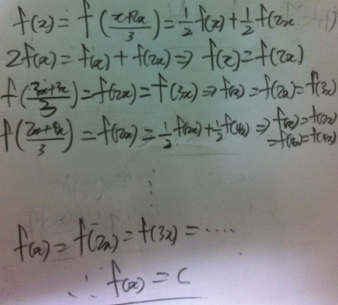 f(x) = f(x+2x/3) = 1/2 f(x) + 1/2 f(2x
2f(x) = f(x) + f(2x) ⇒ f(x) = f(2x)
f(3x+3x/3) = f(2x) = f(3x) ⇒ f(x) = f(2x) = f(3x)
f(2x+4x/3) = f(2x) = 1/2 f(2x) + 1/2 f(4x) ⇒ f(x) = f(2x)
= f(3x) = f(4x)
⋮
f(x) = f(2x) = f(3x) = ....
∴ f(x) = C